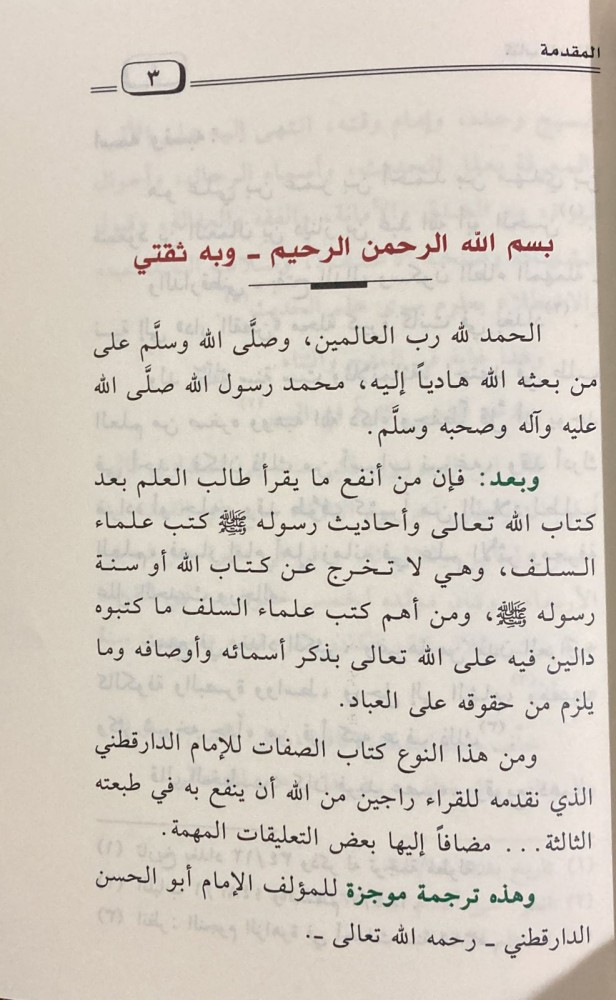 المقدمة
٣
بسم الله الرحمن الرحيم - وبه ثقتي
الحمد لله رب العالمين، وصلَّى الله وسلَّم على
من بعثه الله هادياً إليه، محمد رسول الله صلَّى الله
عليه وآله وصحبه وسلَّم.
وبعد: فإن من أنفع ما يقرأ طالب العلم بعد
كتاب الله تعالى وأحاديث رسوله ﷺ كتب علماء
السلف، وهي لا تخرج عن كتاب الله أو سنة
رسوله ﷺ، ومن أهم كتب علماء السلف ما كتبوه
دالين فيه على الله تعالى بذكر أسمائه وأوصافه وما
يلزم من حقوقه على العباد.
ومن هذا النوع كتاب الصفات للإمام الدارقطني
الذي نقدمه للقراء راجين من الله أن ينفع به في طبعته
الثالثة... مضافاً إليها بعض التعليقات المهمة.
وهذه ترجمة موجزة للمؤلف الإمام أبو الحسن
الدارقطني - رحمه الله تعالى -.